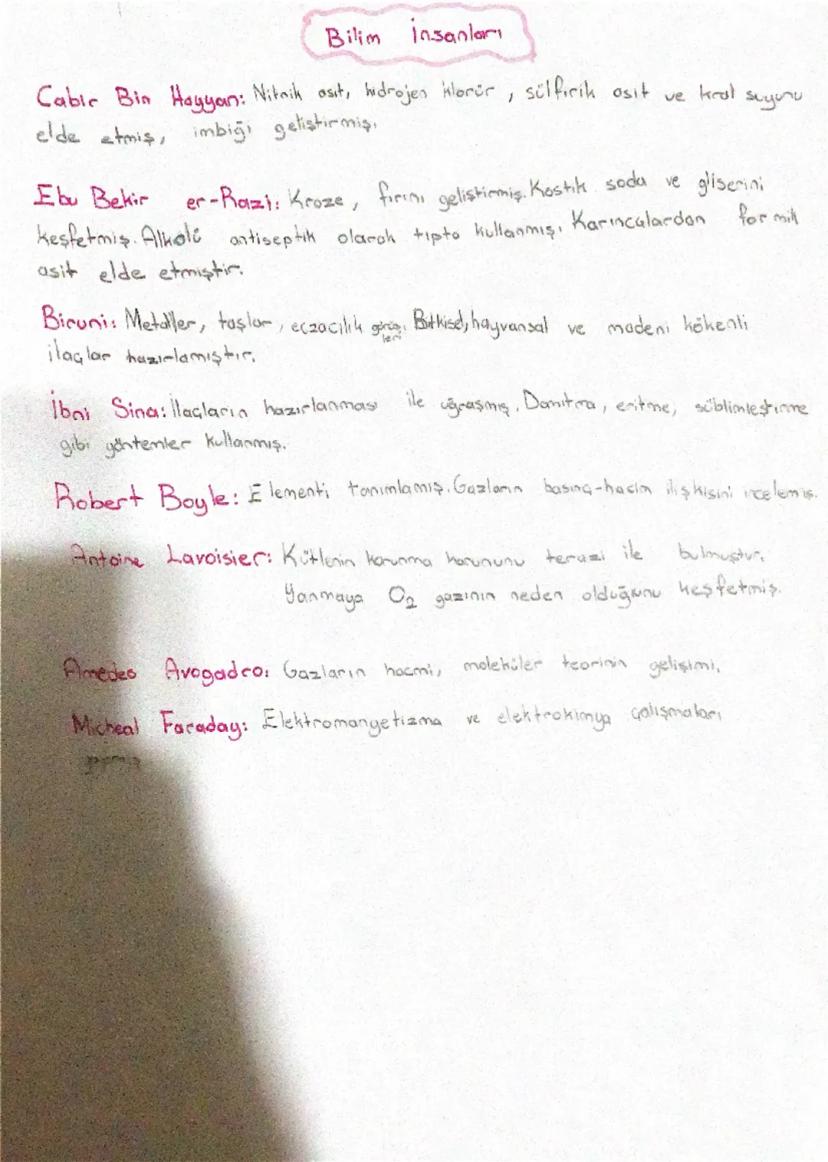 Bilim İnsanları
Cabir Bin Hayyan: Nitrik asit, hidrojen klorür, sülfirik asit ve kral suyunu
elde etmiş, imbiği geliştirmiş.
Ebu Bekir er-Razi: Kroze, fırını geliştirmiş. Kostik soda ve gliserini
keşfetmiş. Alkolü antiseptik olarak tıpta kullanmış. Karıncalardan formik
asit elde etmiştir.
Biruni: Metaller, taşlar, eczacılık görüşleri. Bitkisel, hayvansal ve madeni kökenli
ilaçlar hazırlamıştır.
İbni Sina: İlaçların hazırlanması ile uğraşmış. Damıtma, eritme, süblimleştirme
gibi yöntemler kullanmış.
Robert Boyle: Elementi tanımlamış. Gazların basınç-hacim ilişkisini incelemiş.
Antoine Lavoisier: Kütlenin korunma kanununu terazi ile bulmuştur.
Yanmaya O₂ gazının neden olduğunu keşfetmiş.
Amedeo Avogadro: Gazların hacmi, moleküler teorinin gelişimi.
Micheal Faraday: Elektromanyetizma ve elektrokimya çalışmaları
yapmış